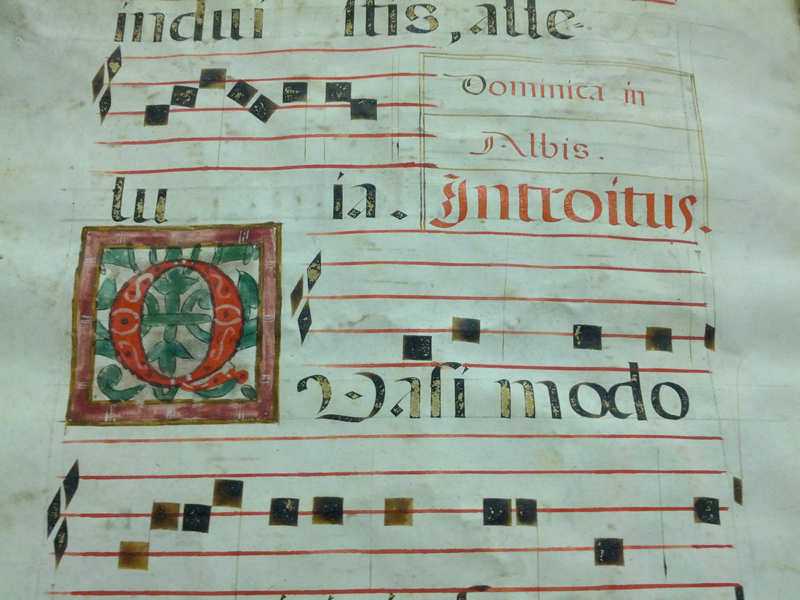 induiſtis, alle-
Dominica in
Albis.
luia. Introitus.
QVaſi modo